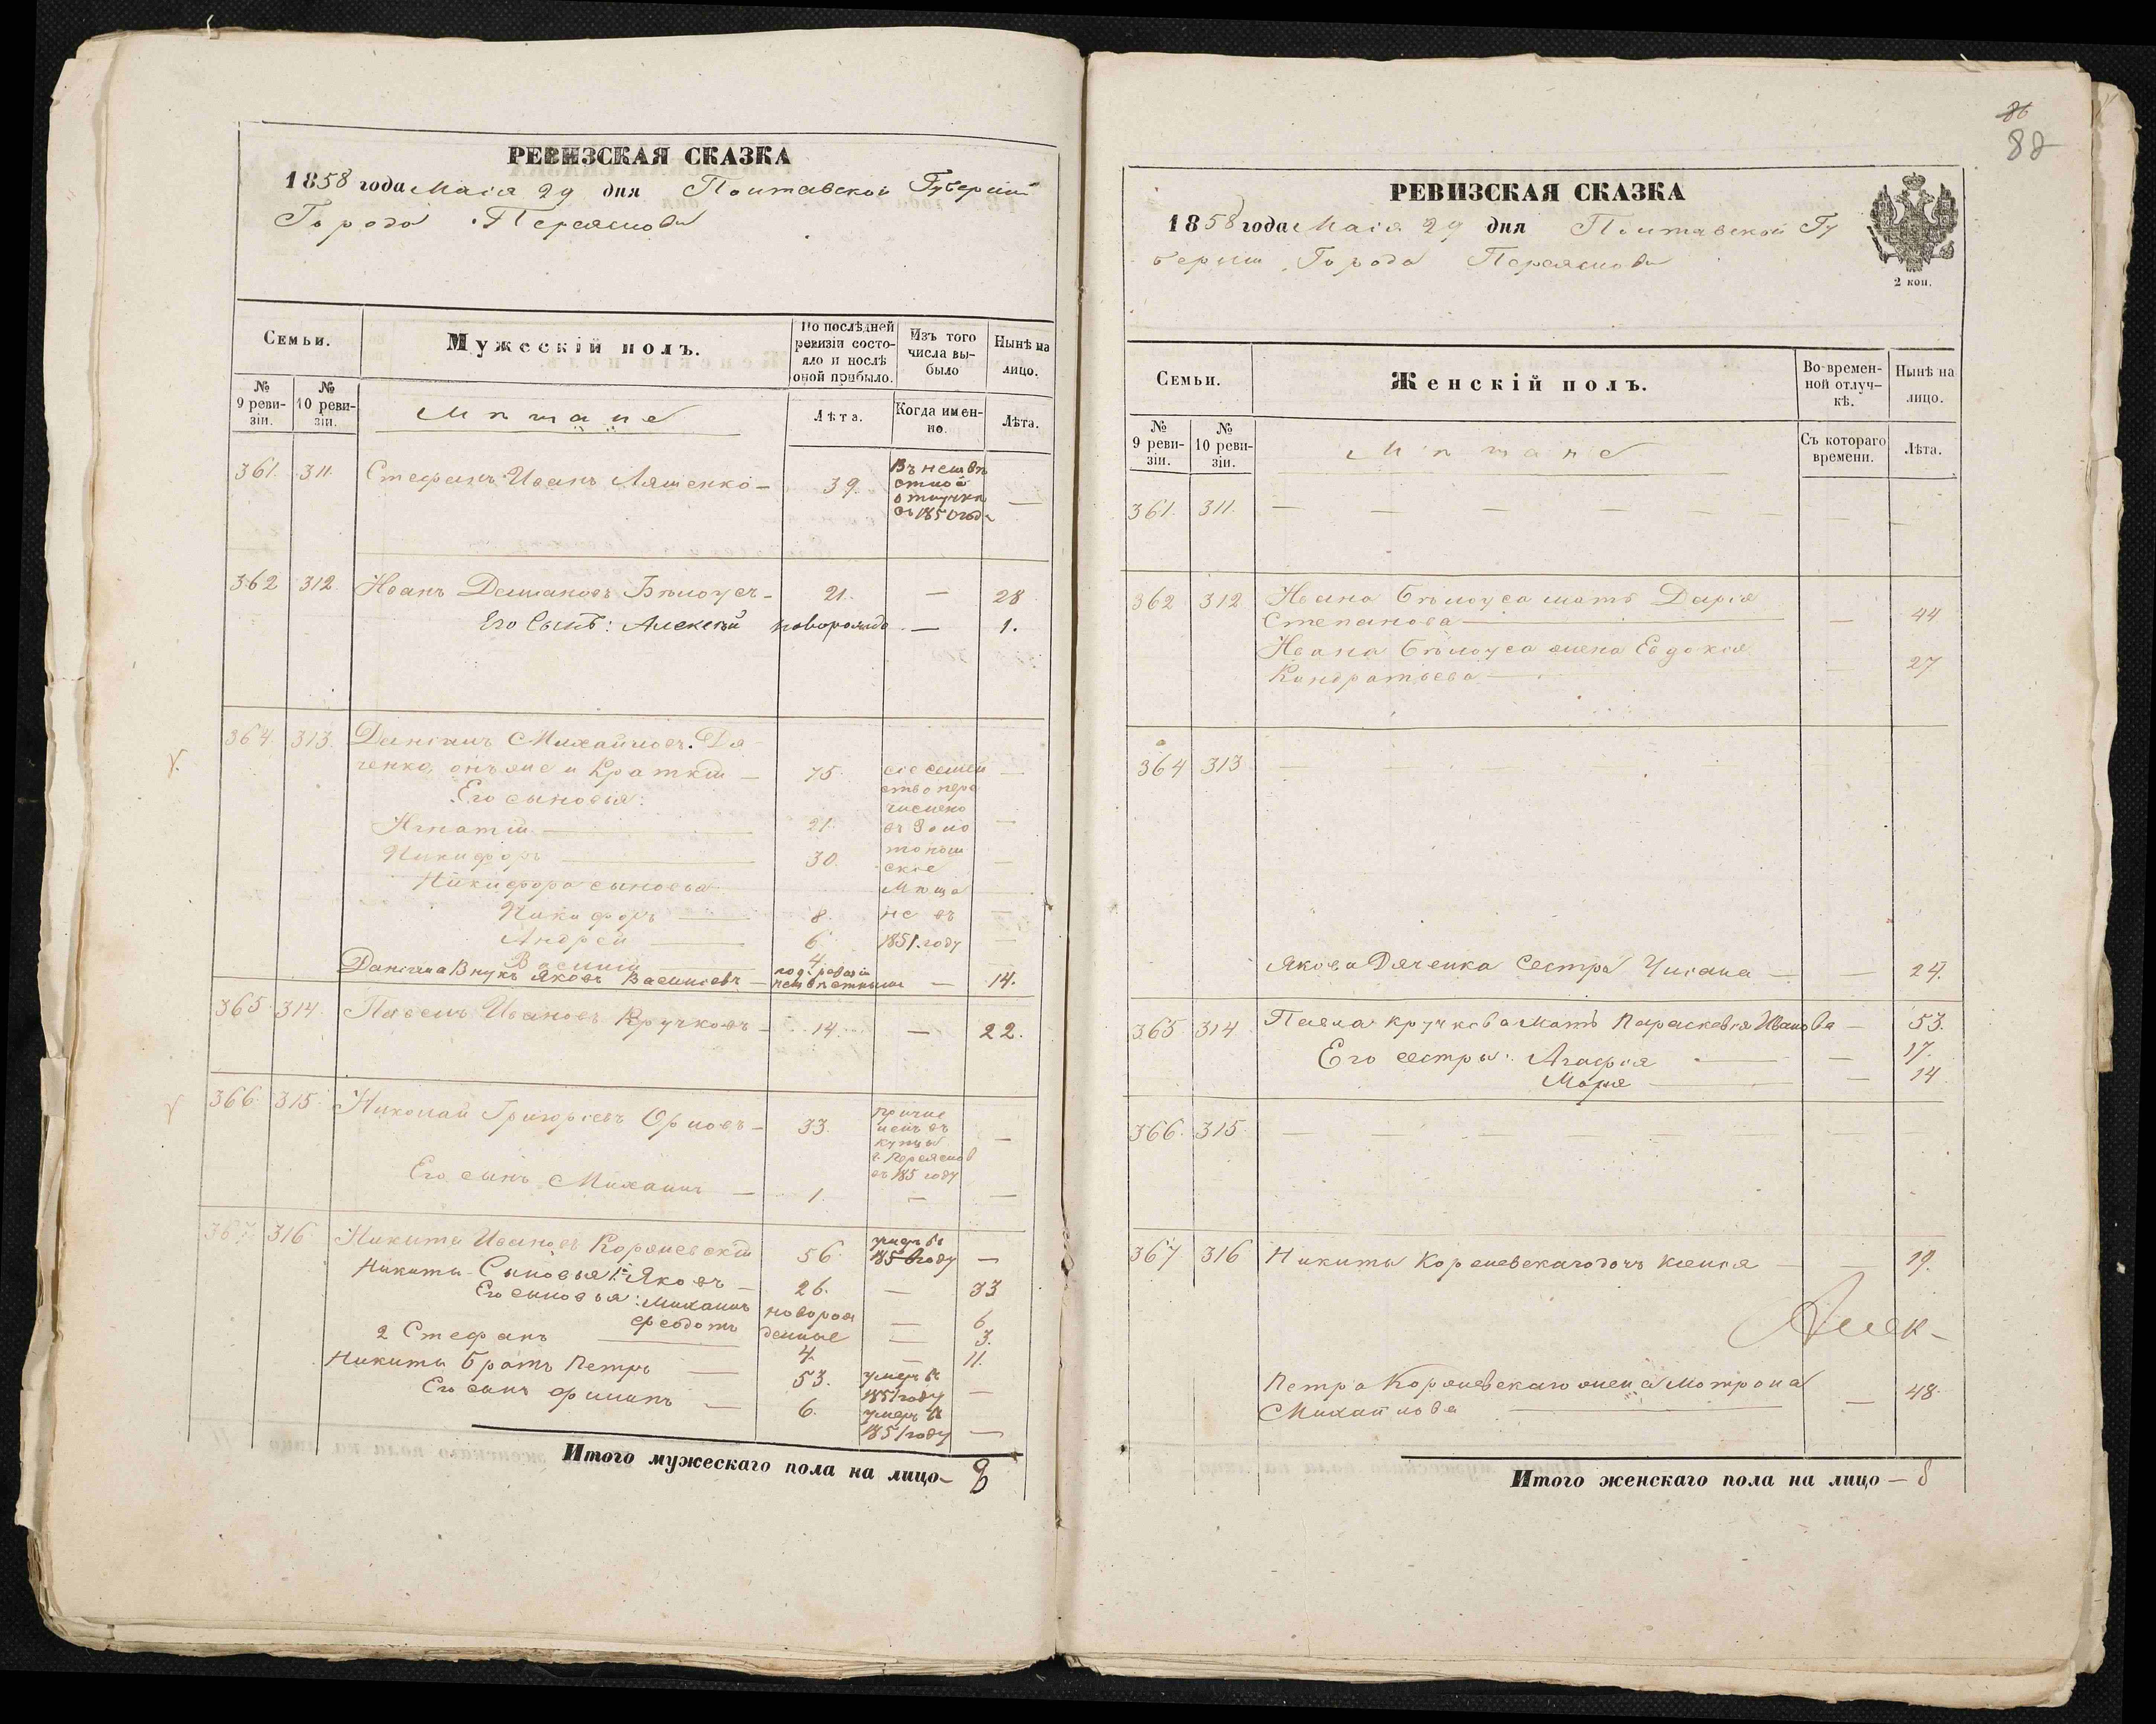 РЕВИЗСКАЯ СКАЗКА
1858 года Маія 29 дня Полтавской Губерніи
Города Переяслова
Семьи.
Мужескій полъ.
По послѣдней ревизіи состояло и послѣ оной прибыло.
Изъ того числа выбыло
Нынѣ на лицо.
№ 9 ревизіи.
№ 10 ревизіи.
Мѣщане
Лѣта.
Когда именно.
Лѣта.
361. 311. Стефанъ Иванъ Ляшенко — 39. Въ неизвѣстной отлучкѣ съ 1850 года —
362 312. Иванъ Демяновъ Бѣлоусъ — 21. — 28
Его Сынъ: Алексѣй новорожд. — 1.
364. 313. Даніилъ Михайловъ Дяченко, онъ же и Краткій — 75. сіе семейство перечислено въ Золотоношскіе Мѣщане въ 1851. году —
Его сыновья:
Игнатій — 21. —
Никифоръ — 30. —
Никифора сыновья
Никифоръ — 8. —
Андрей — 6. —
Василій 4.
Даніила Внукъ Яковъ Василіевъ — 14.
365. 314. Павелъ Ивановъ Кручковъ — 14. — 22.
366. 315. Николай Григоріевъ Орловъ — 33. причисленъ въ купцы г. Переяслов въ 185 году —
Его сынъ Михаилъ — 1. — —
367. 316 Никита Ивановъ Коржевскій 56. умеръ въ 1856 году —
Никиты Сыновья: 1й Яковъ — 26. — 33
Его сыновья: Михаилъ новорожденные — 6
Феодотъ — 3.
2 Стефанъ — 4. — 11.
Никиты братъ Петръ — 53. умеръ въ 1851 году —
Его сынъ Филипъ — 6. умеръ въ 1851 году —
Итого мужескаго пола на лицо — 8
86
82
РЕВИЗСКАЯ СКАЗКА
1858 года Маія 29 дня Полтавской Гу
берніи Города Переяслова
2 коп.
Семьи.
Женскій полъ.
Во временной отлучкѣ.
Нынѣ на лицо.
№ 9 ревизіи.
№ 10 ревизіи.
Мѣщане
Съ котораго времени.
Лѣта.
361. 311. — — — — — — —
362 312 Ивана Бѣлоуса мать Дарія
Степанова — — 44
Ивана Бѣлоуса жена Евдокія
Кондратьева — — 27
364 313 — — — — — —
Якова Дяченка Сестра Уліана — — 24.
365 314 Павла Кручкова Мать Параскевія Иванова — 53.
Его сестры: Агафія — — 17.
Марія — — 14
366. 315. — — — — — —
367 316 Никиты Коржевскаго дочь Ксенія — — 19.
Алек-
Петра Коржевскаго жена Мотрона
Михайлова — — 48.
Итого женскаго пола на лицо — 8